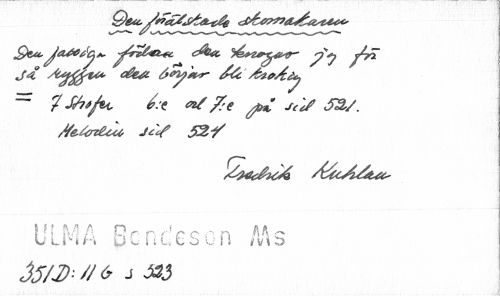 Den förälskade skomakaren
Den fattiga födan den tenager jag för
så ryggen den börjar bli krokig
= 7 Strofer 6:e och 7:e på sid 521.
Melodin sid 524
Fredrik Kuhlau
ULMA Bondeson Ms
351D: 11 G s 523